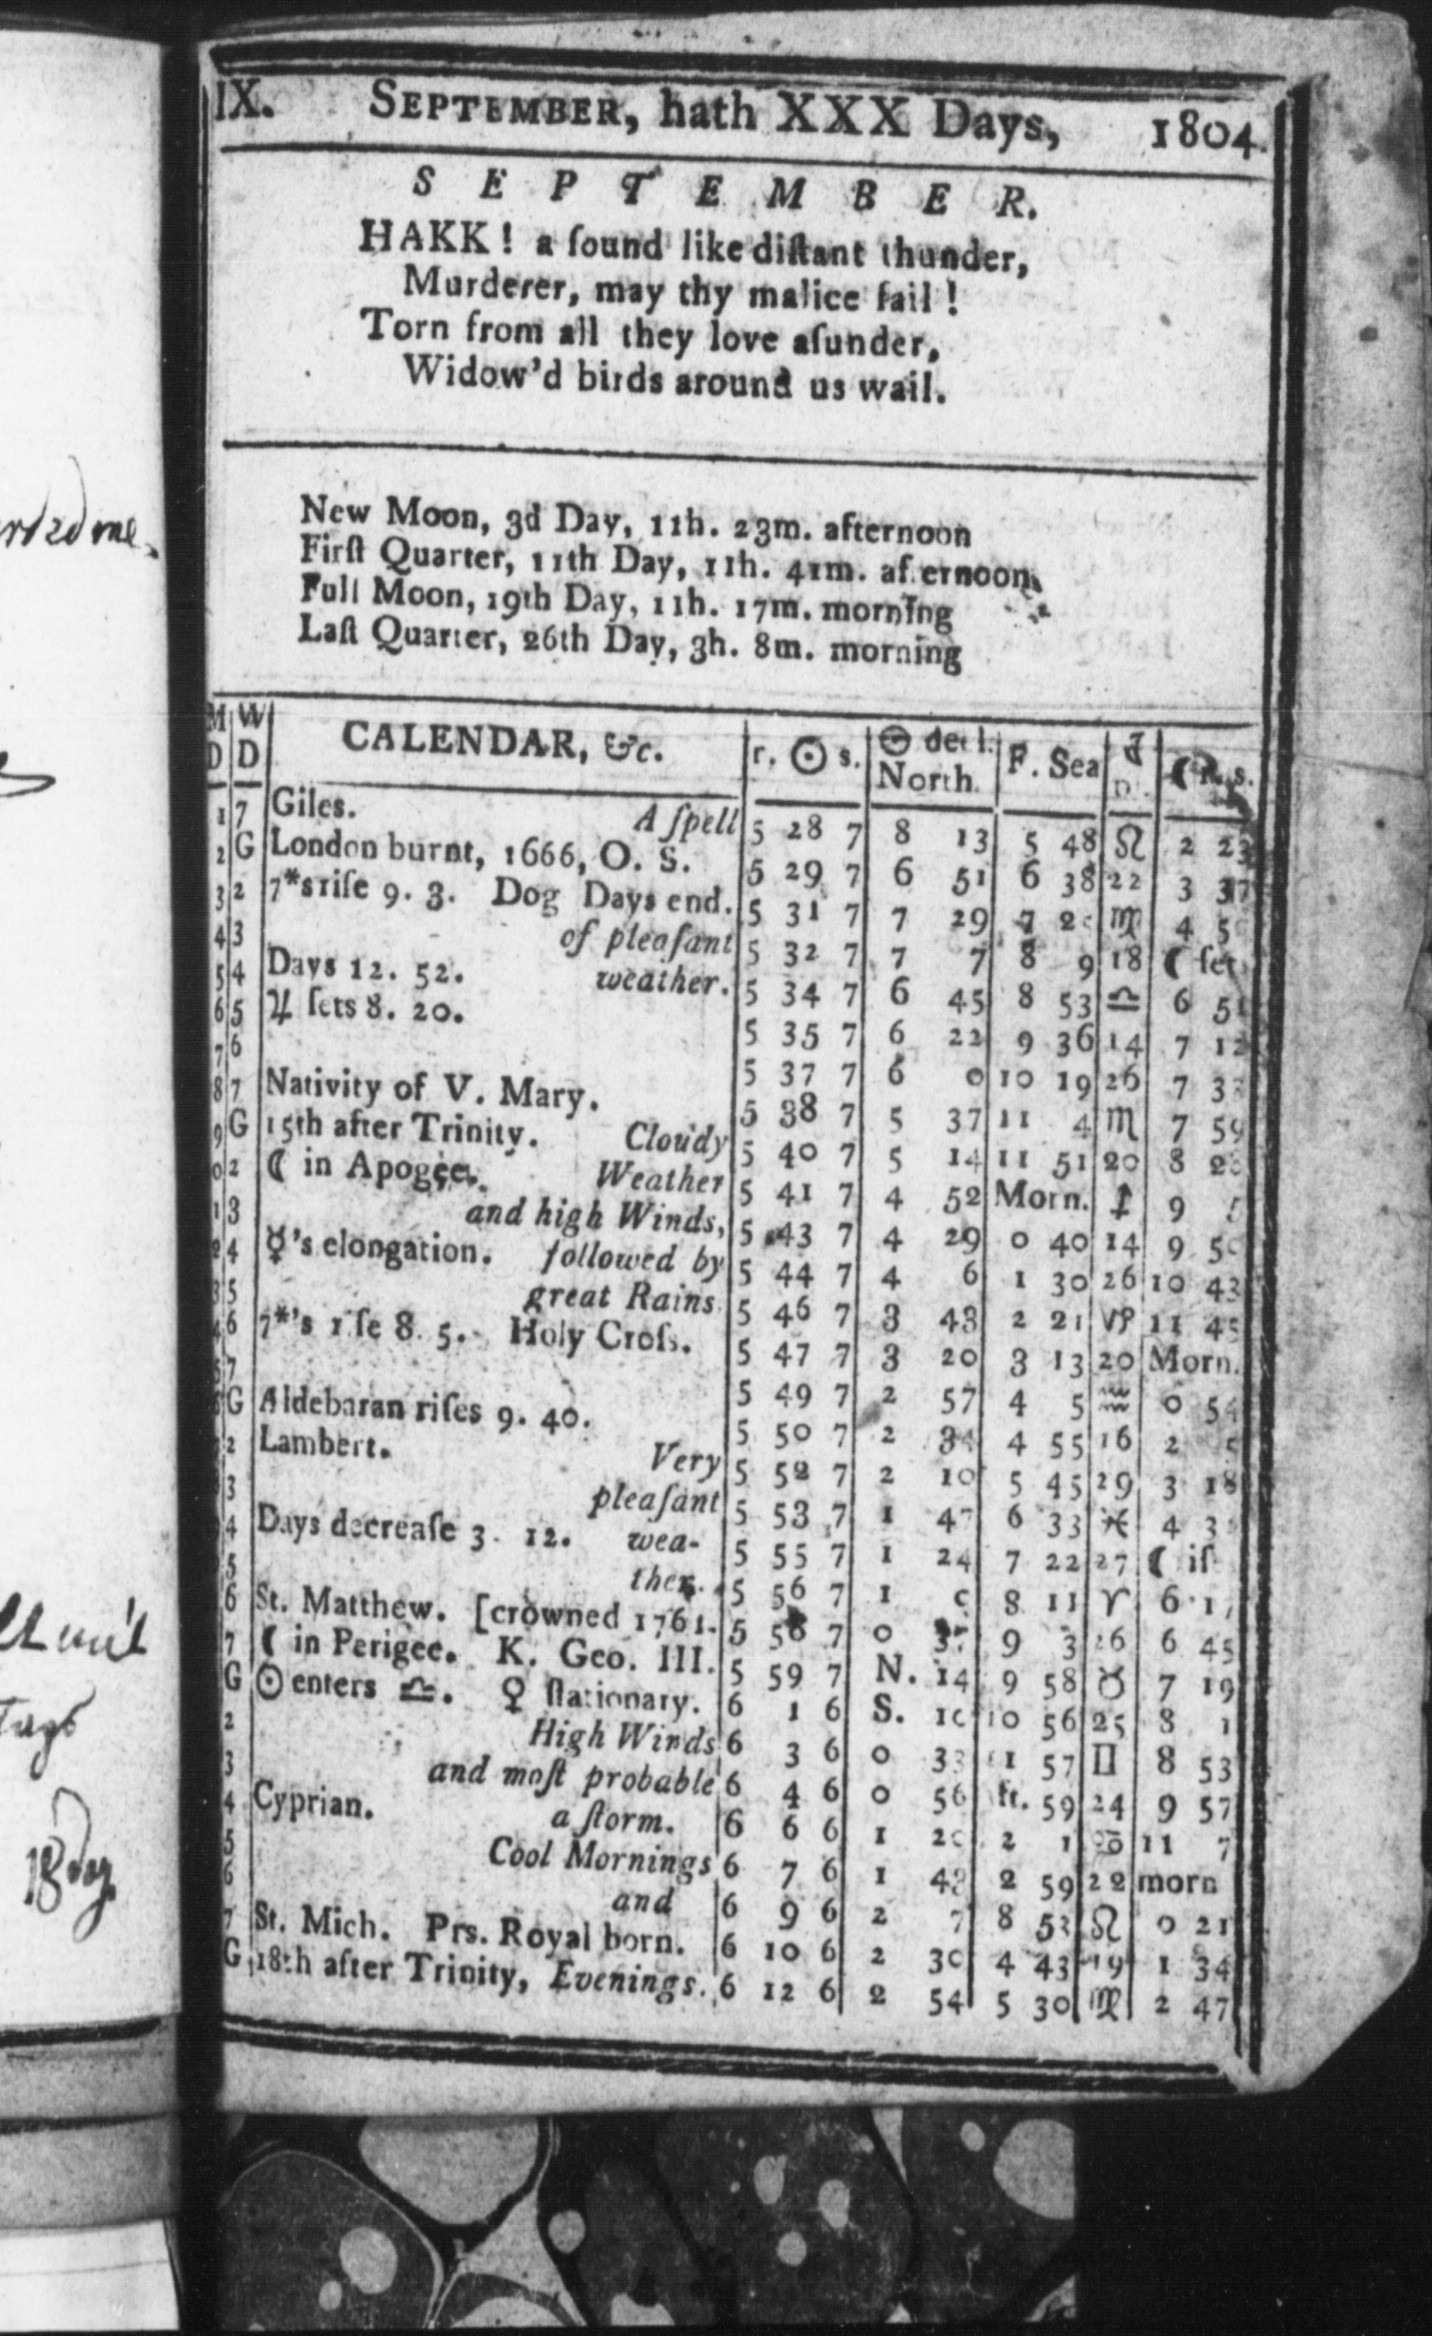 IX. SEPTEMBER, hath XXX Days, 1804.
SEPTEMBER.
HAKK! a ſound like diſtant thunder,
Murderer, may thy malice fail!
Torn from all they love aſunder,
Widow'd birds around us wail.
New Moon, 3d Day, 11h. 23m. afternoon
Firſt Quarter, 11th Day, 11h. 41m. af ernoon.
Full Moon, 19th Day, 11h. 17m. morning
Laſt Quarter, 26th Day, 3h. 8m. morning
M D W D CALENDAR, &c. r. ☉ s. ☉ decl. North. F. Sea ☾ s.
1 7 Giles. A ſpell 5 28 7 8 13 5 48 ♌ 2 23
2 G London burnt, 1666, O. S. 5 29 7 6 51 6 38 22 3 37
3 2 7*s riſe 9. 3. Dog Days end. 5 31 7 7 29 7 ♍ 4
4 3 of pleaſant 5 32 7 7 7 8 9 18 ☾ ſet
5 4 Days 12. 52. weather. 5 34 7 6 45 8 53 ♎ 6 51
6 5 ♃ ſets 8. 20. 5 35 7 6 22 9 36 14 7 12
7 6 5 37 7 6 0 10 19 26 7 33
8 7 Nativity of V. Mary. 5 38 7 5 37 11 4 ♏ 7 59
9 G 15th after Trinity. Cloudy 5 40 7 5 14 11 51 20 8
0 2 ☾ in Apogee. Weather 5 41 7 4 52 Morn. ♐ 9
1 3 and high Winds, 5 43 7 4 29 0 40 14 9
2 4 ☿'s elongation. followed by 5 44 7 4 6 1 30 26 10 43
5 great Rains 5 46 7 3 43 2 21 ♑ 11 45
6 7*'s riſe 8. 5. Holy Croſs. 5 47 7 3 20 3 13 20 Morn.
7 5 49 7 2 57 4 5 ♒ 0 54
G Aldebaran riſes 9. 40. 5 50 7 2 34 4 55 16 2 5
2 Lambert. Very 5 52 7 2 10 5 45 29 3 18
3 pleaſant 5 53 7 1 47 6 33 ♓ 4
4 Days decreaſe 3. 12. wea- 5 55 7 1 24 7 22 27 ☾ iſ
5 ther. 5 56 7 1 8 11 ♈ 6
6 St. Matthew. [crowned 1761. 5 58 7 0 37 9 3 26 6 45
7 ☾ in Perigee. K. Geo. III. 5 59 7 N. 14 9 58 ♉ 7 19
G ☉ enters ♎. ♀ ſtationary. 6 1 6 S. 10 10 56 25 8 1
2 High Winds 6 3 6 0 33 11 57 ♊ 8 53
3 and moſt probable 6 4 6 0 56 ft. 59 24 9 57
4 Cyprian. a ſtorm. 6 6 6 1 20 2 1 ♋ 11 7
5 Cool Mornings 6 7 6 1 43 2 59 22 morn
6 and 6 9 6 2 7 8 53 ♌ 0 21
7 St. Mich. Prs. Royal born. 6 10 6 2 30 4 43 19 1 34
G 18th after Trinity, Evenings. 6 12 6 2 54 5 30 ♍ 2 47